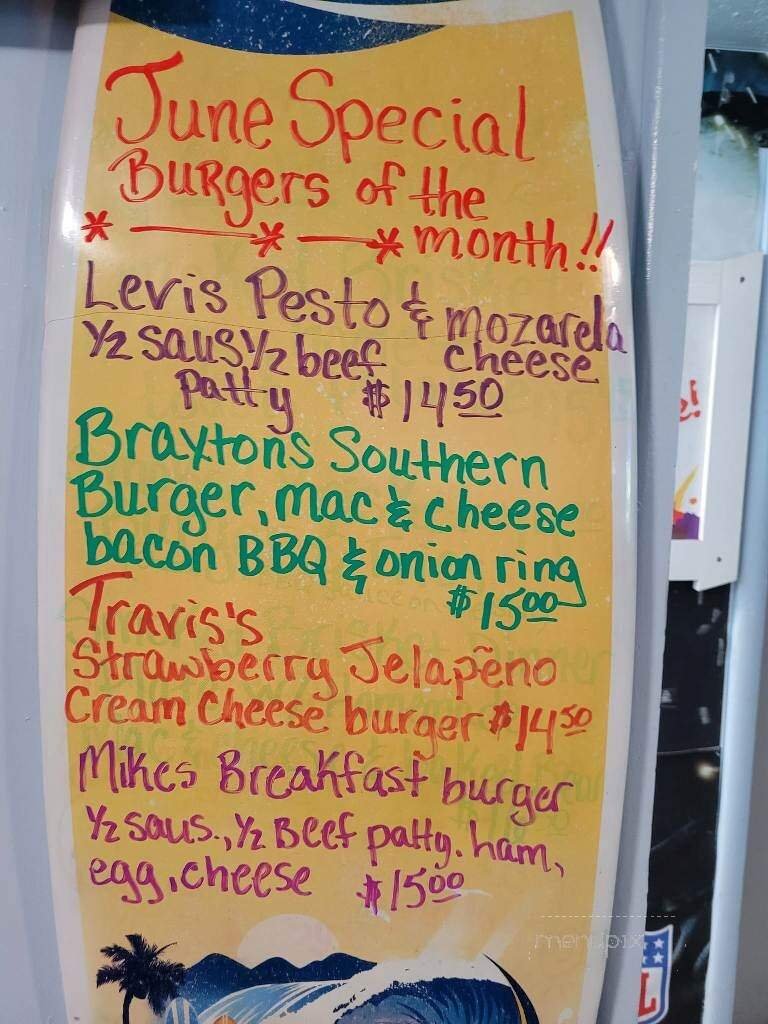 June Special
Burgers of the
* — * — * month!!
Levis Pesto & mozarela
1/2 saus 1/2 beef cheese
patty $14.50
Braxtons Southern
Burger, mac & cheese
bacon BBQ & onion ring
$15.00
Travis's
Strawberry Jelapẽno
Cream Cheese burger $14.50
Mikes Breakfast burger
1/2 saus., 1/2 Beef patty. ham,
egg, cheese $15.00
menupix